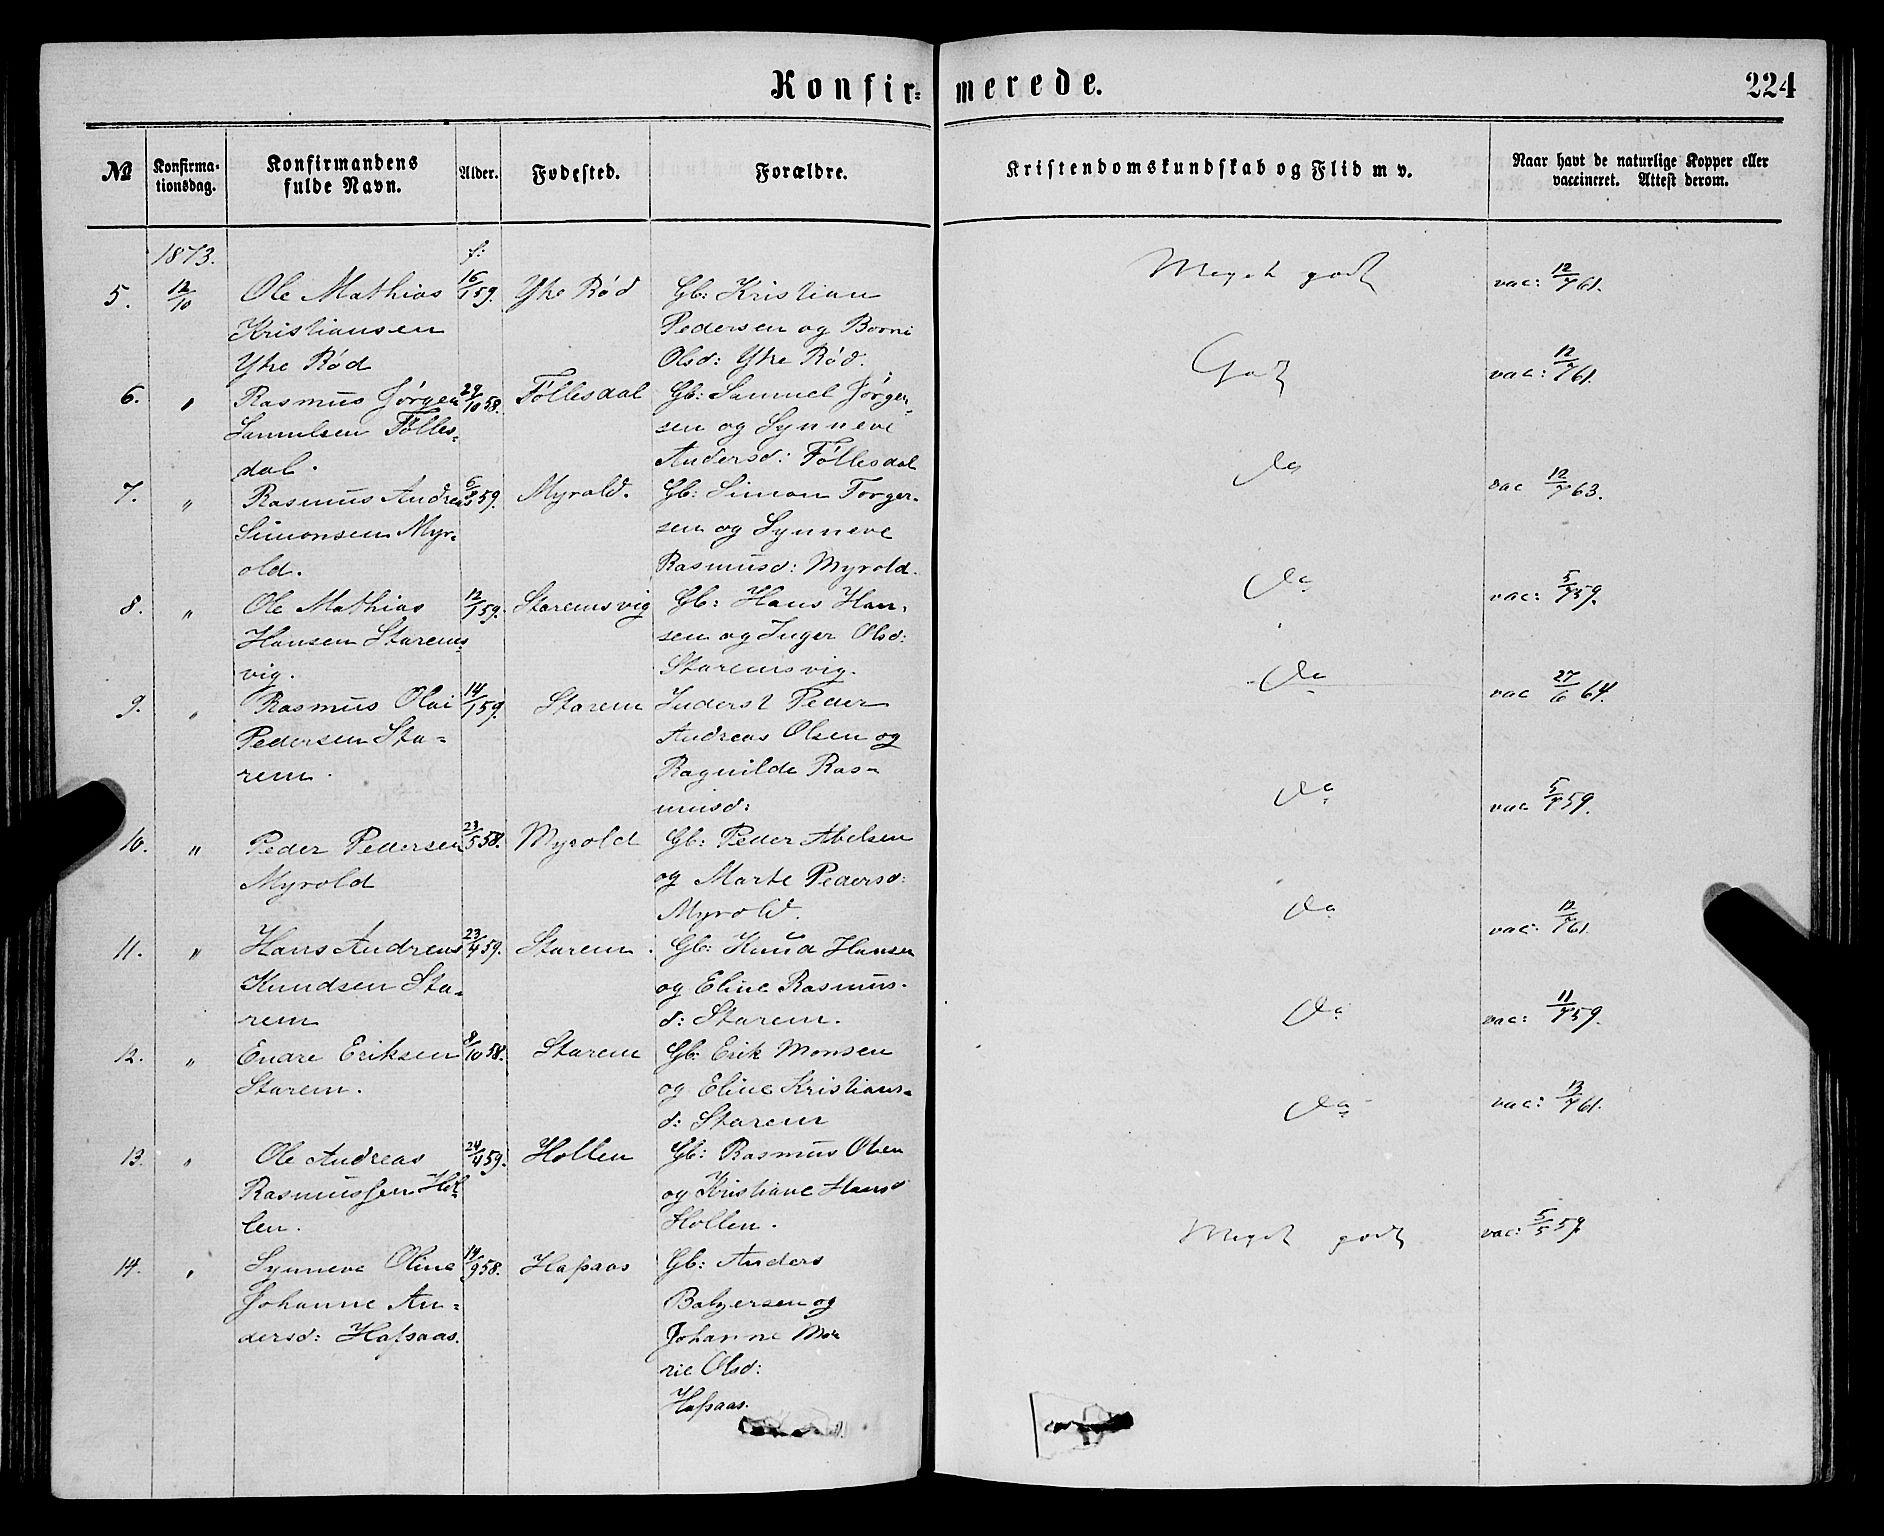 Konfir- merede. 224
№ Konfirma-tionsdag. Konfirmandens fulde Navn. Alder. Fødested. Forældre. Kristendomskundskab og Flid m v. Naar havt de naturlige Kopper eller vaccineret. Attest derom.
1873. f:
5. 12/10 Ole Mathias 16/1 59. Ytre Rød Gb: Kristian Meget godt vac: 12/7 61.
Kristiansen Pedersen og Borni
Ytre Rød Olsd: Ytre Rød.
6. " Rasmus Jørgen 29/10 58. Føllesdal Gb: Samuel Jørgen- Godt vac: 12/7 61.
Samulsen Følles- sen og Synneve
dal. Andersd: Føllesdal
7. " Rasmus Andreas 6/8 59. Myrold. Gb: Simon Torger- do vac 12/7 63.
Simonsen Myr- sen og Synneve
old. Rasmusd: Myrold.
8. " Ole Mathias 12/1 59. Staremsvig Gb: Hans Han- do vac: 5/7 59.
Hansen Starems- sen og Inger Olsd:
vig. Staremsvig.
9. " Rasmus Olai 14/1 59. Starem Inderst Peder do vac 27/6 64.
Pedersen Sta- Andreas Olsen og
rem. Ragnilde Ras-
musd:
10. " Peder Pedersen 23/5 58. Myrold Gb: Peder Abelsen do vac 5/7 59.
Myrold og Marte Pedersd:
Myrold.
11. " Hans Andreas 23/4 59. Starem. Gb: Knud Hansen do vac: 12/7 61.
Knudsen Sta- og Eline Rasmus-
rem d: Starem.
12. " Endre Eriksen 8/10 58. Starem Gb: Erik Monsen do vac: 11/7 59.
Starem. og Eline Kristians-
d: Starem
13. " Ole Andreas 24/4 59. Hollen Gb: Rasmus Olsen do vac: 13/7 61.
Rasmussen Hol- og Kristiane Hansd
len. Hollen.
14. " Synneve Oline 14/9 58. Hafsaas Gb: Anders Meget godt vac: 5/5 59
Johanne An- Balzersen og
dersd: Hafsaas. Johanne Ma
rie Olsd:
Hafsaas.